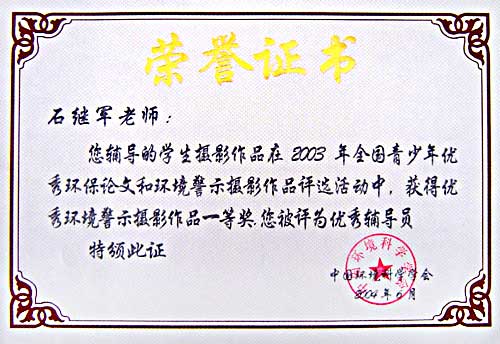 荣誉证书
石继军老师：
您辅导的学生摄影作品在2003年全国青少年优
秀环保论文和环境警示摄影作品评选活动中，获得优
秀环境警示摄影作品一等奖.您被评为优秀辅导员
特颁此证
中国环境科学学会
2004年6月